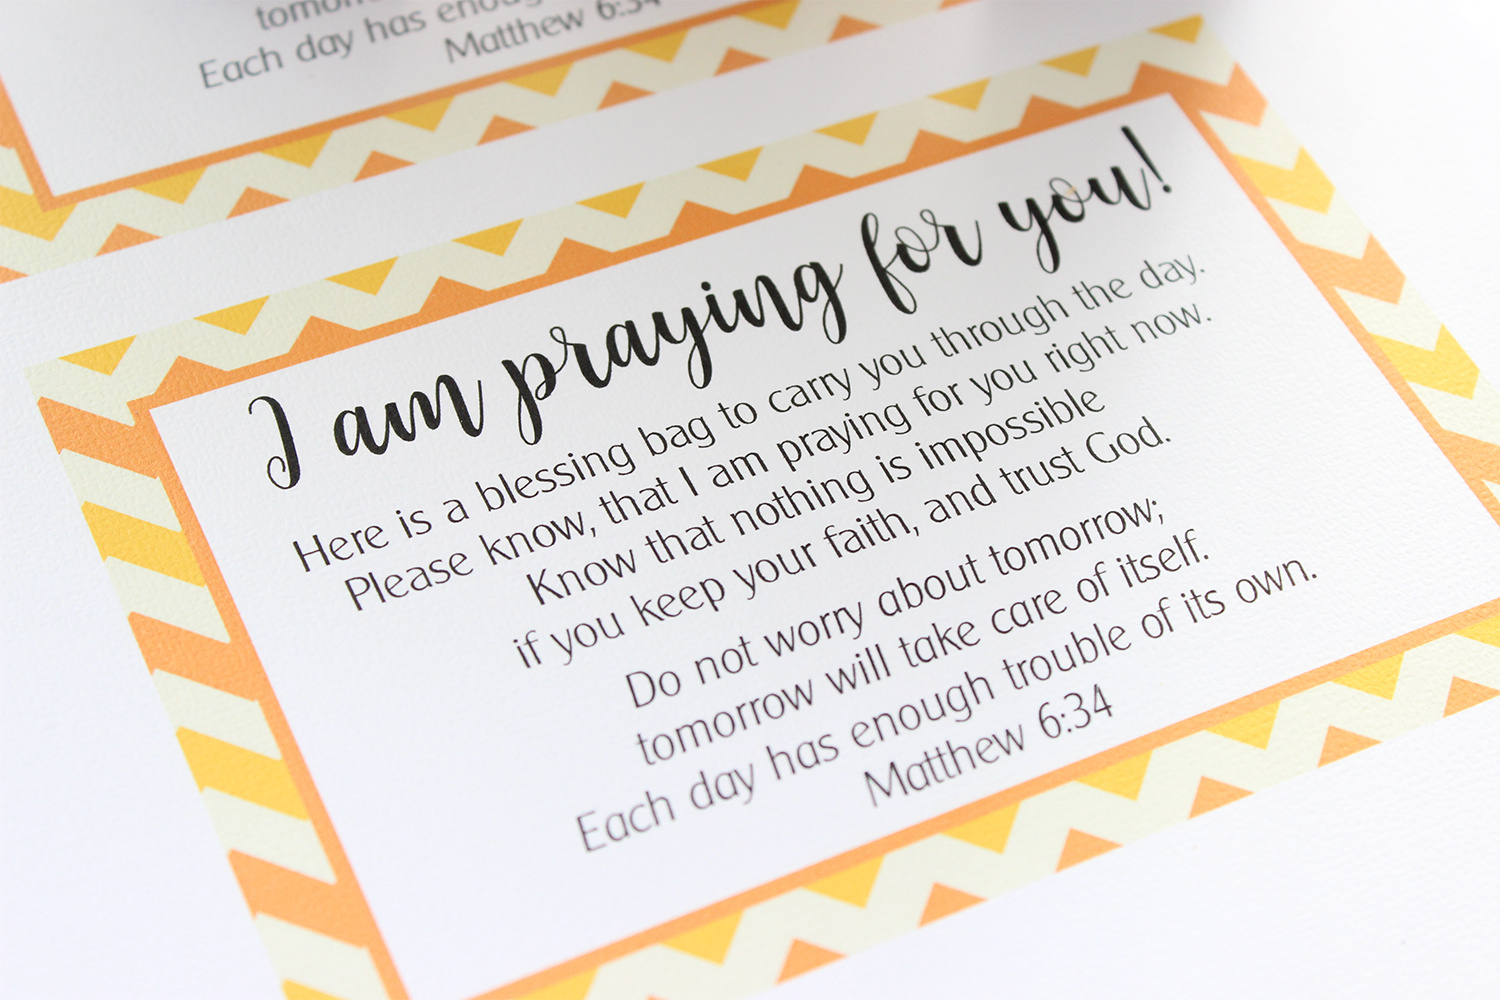 Each day has enough
Matthew 6:34
I am praying for you!
Here is a blessing bag to carry you through the day.
Please know, that I am praying for you right now.
Know that nothing is impossible
if you keep your faith, and trust God.
Do not worry about tomorrow;
tomorrow will take care of itself.
Each day has enough trouble of its own.
Matthew 6:34